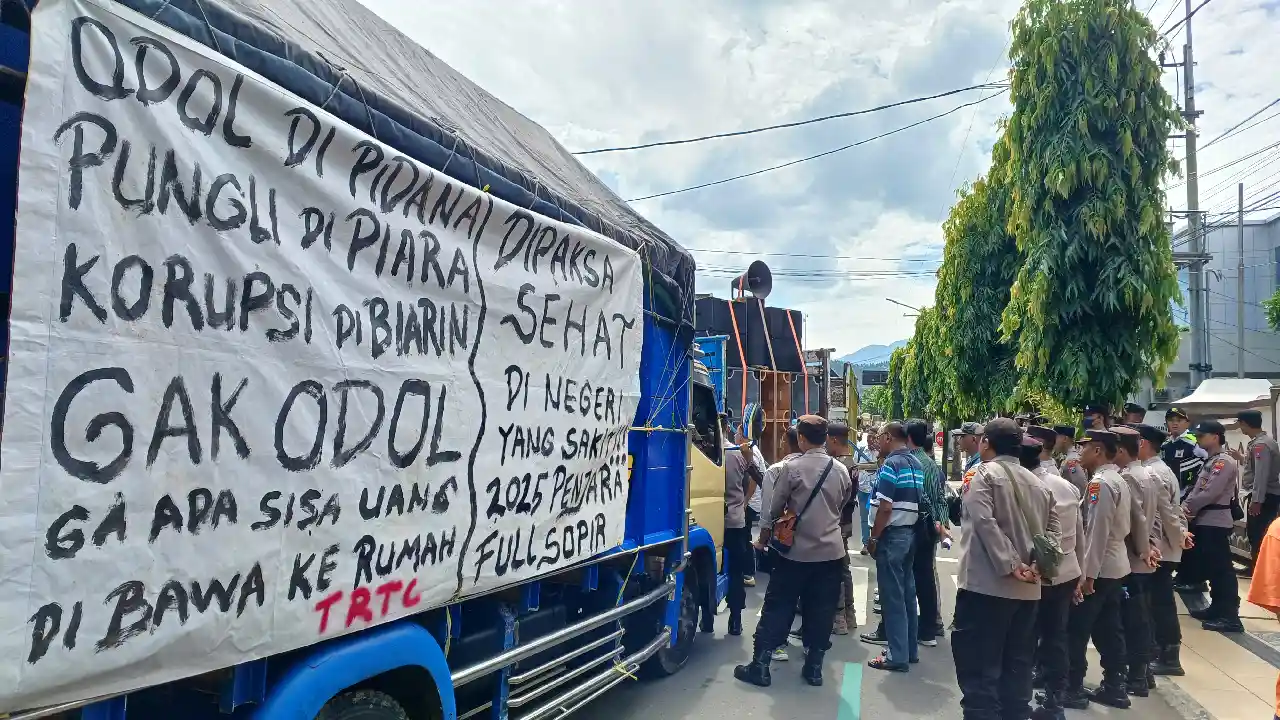 ODOL DI PIDANA
PUNGLI DI PIARA
KORUPSI DIBIARIN
GAK ODOL
GA ADA SISA UANG
DI BAWA KE RUMAH
TRTC
DIPAKSA
SEHAT
DI NEGERI
YANG SAKIT!!!
2025 PENJARA
FULL SOPIR